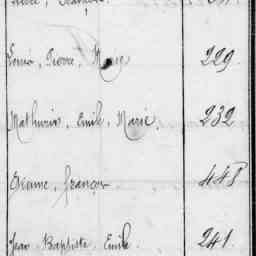 Louis, Pierre, Marie 229.
Mathurin, Emile, Marie. 232
François 448
Jean Baptiste, Emile. 241.